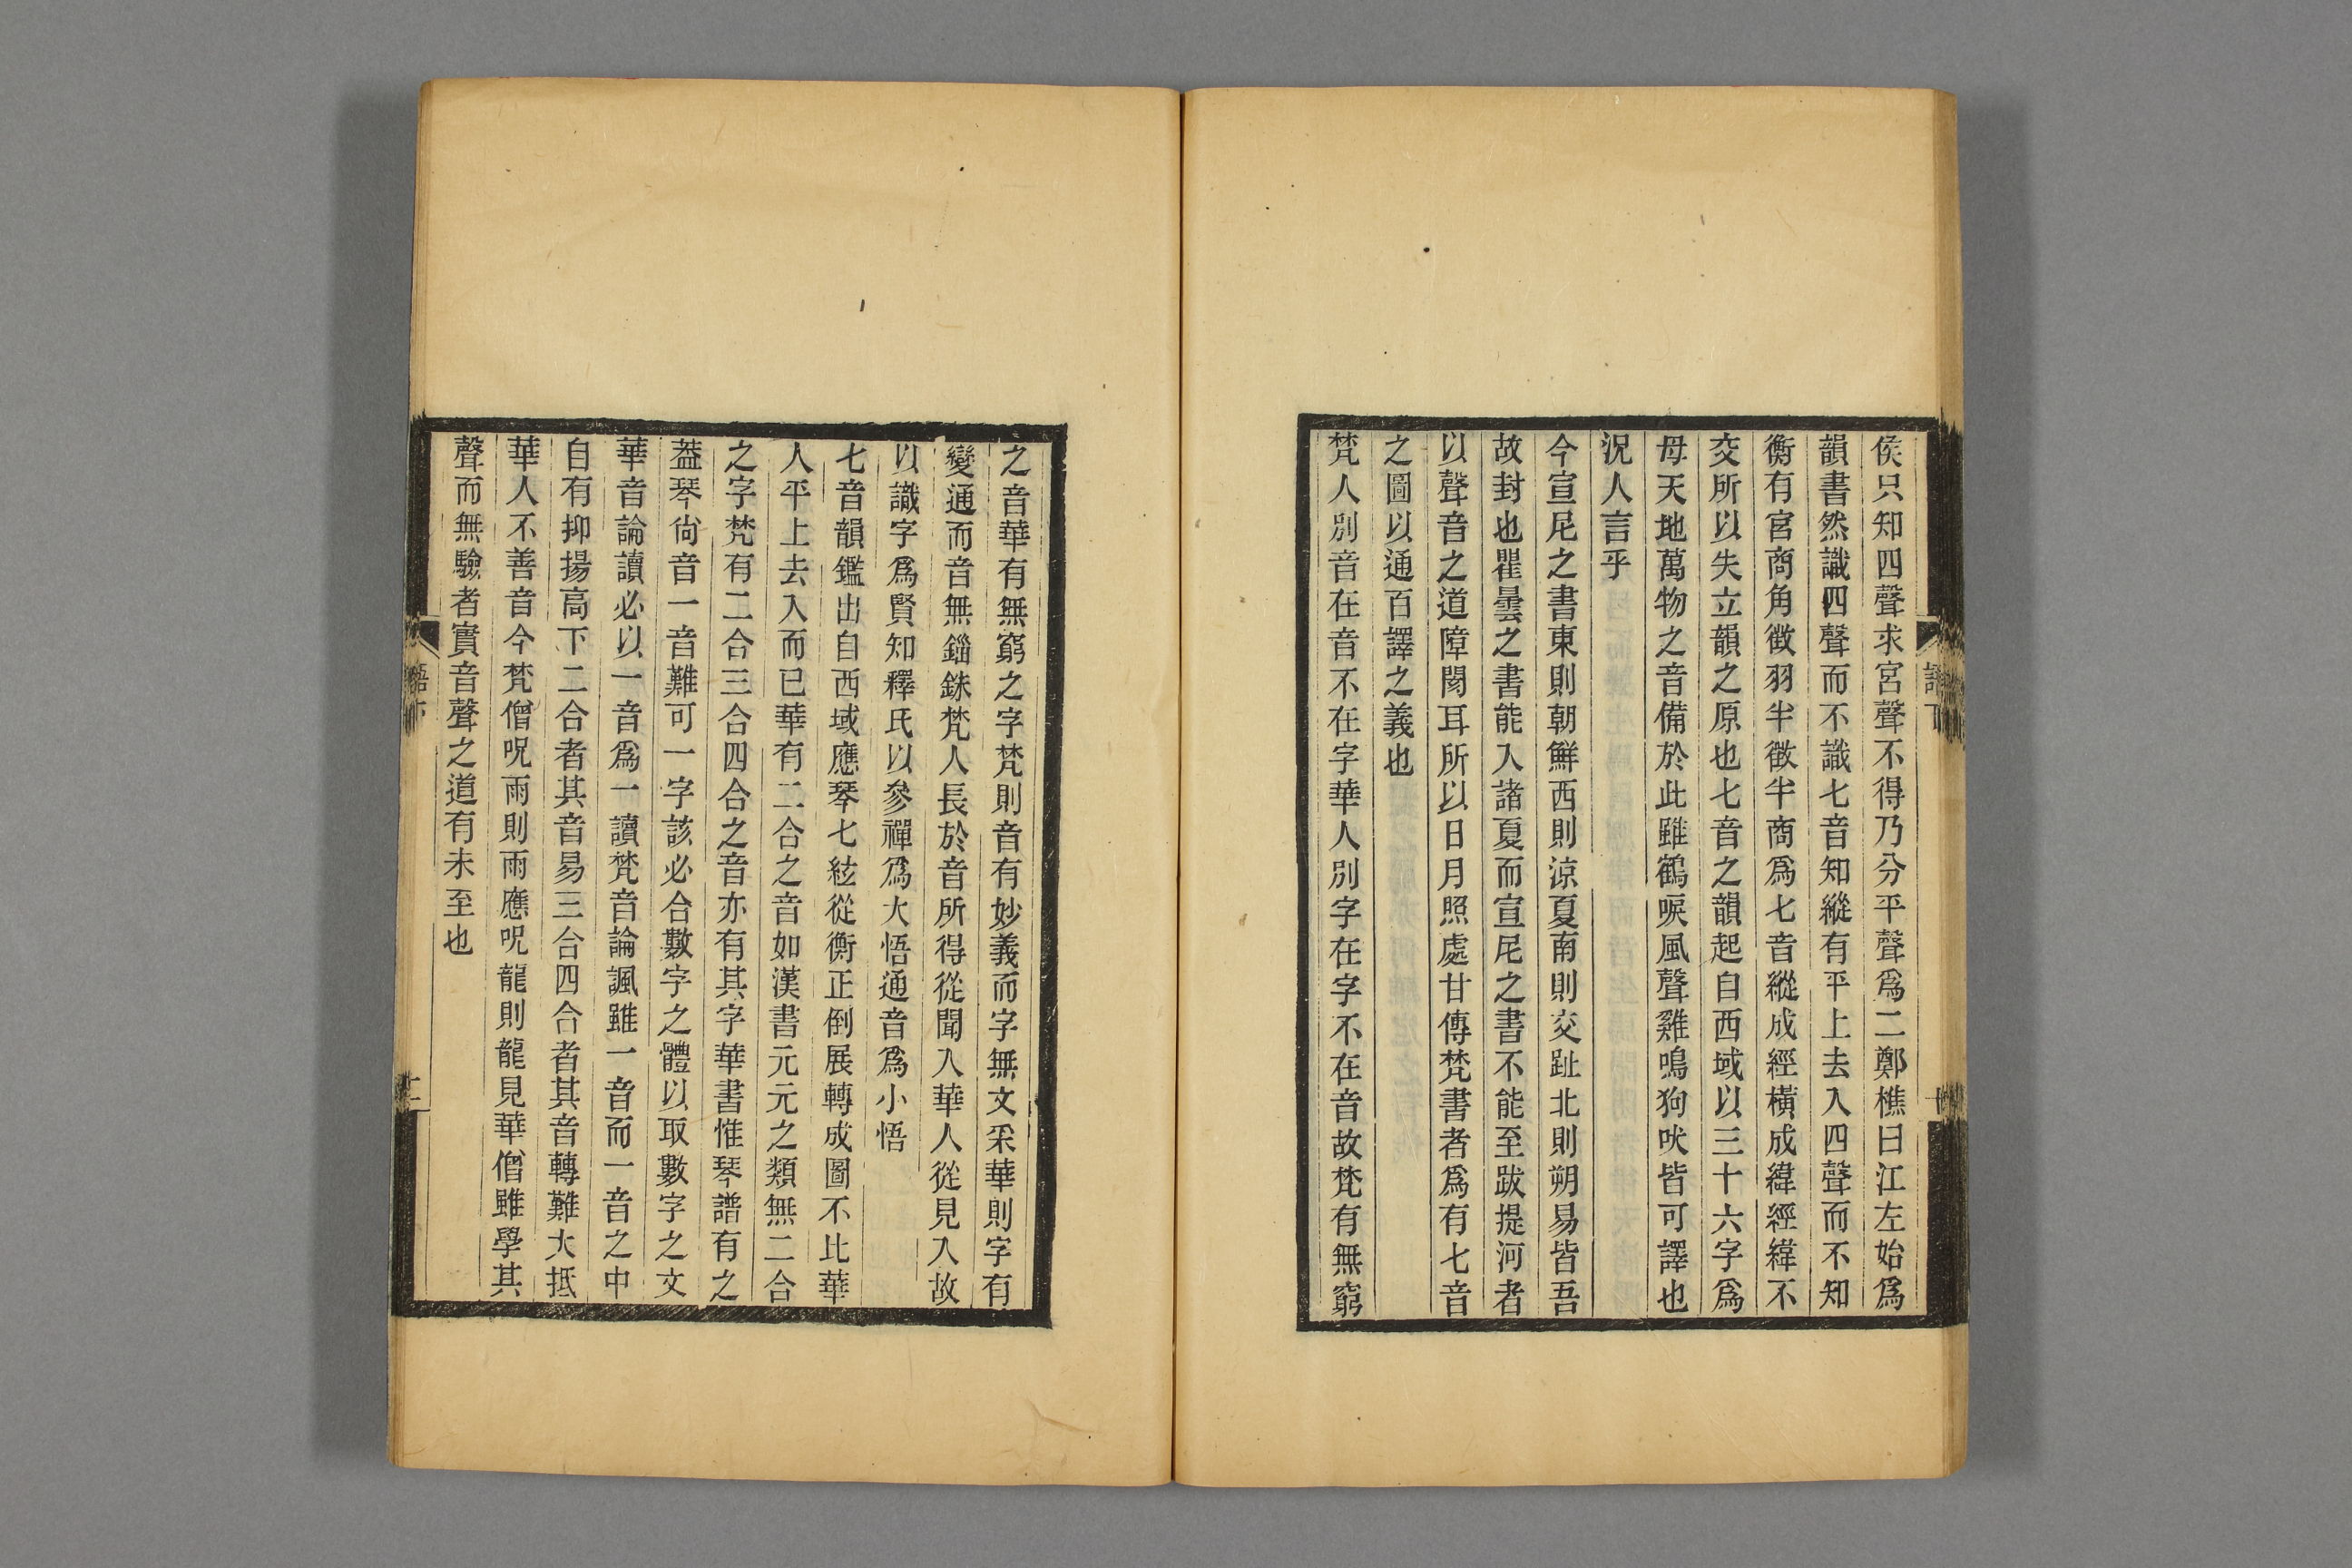 侯只知四聲求宮聲不得乃分平聲爲二鄭樵曰江左始爲
韻書然識四聲而不識七音知縱有平上去入四聲而不知
衡有宮商角徵羽半徵半商爲七音縱成經橫成緯經緯不
交所以失立韻之原也七音之韻起自西域以三十六字爲
母天地萬物之音備於此雖鶴唳風聲雞鳴狗吠皆可譯也
況人言乎
今宣尼之書東則朝鮮西則涼夏南則交趾北則朔易皆吾
故封也瞿曇之書能入諸夏而宣尼之書不能至跋提河者
以聲音之道障閡耳所以日月照處甘傳梵書者爲有七音
之圖以通百譯之義也
梵人別音在音不在字華人別字在字不在音故梵有無窮
之音華有無窮之字梵則音有妙義而字無文采華則字有
變通而音無錙銖梵人長於音所得從聞入華人從見入故
以識字爲賢知釋氏以參禪爲大悟通音爲小悟
七音韻鑑出自西域應琴七絃從衡正倒展轉成圖不比華
人平上去入而已華有二合之音如漢書元元之類無二合
之字梵有二合三合四合之音亦有其字華書惟琴譜有之
葢琴尙音一音難可一字該必合數字之體以取數字之文
華音論讀必以一音爲一讀梵音論諷雖一音而一音之中
自有抑揚高下二合者其音易三合四合者其音轉難大抵
華人不善音今梵僧呪雨則雨應呪龍則龍見華僧雖學其
聲而無驗者實音聲之道有未至也